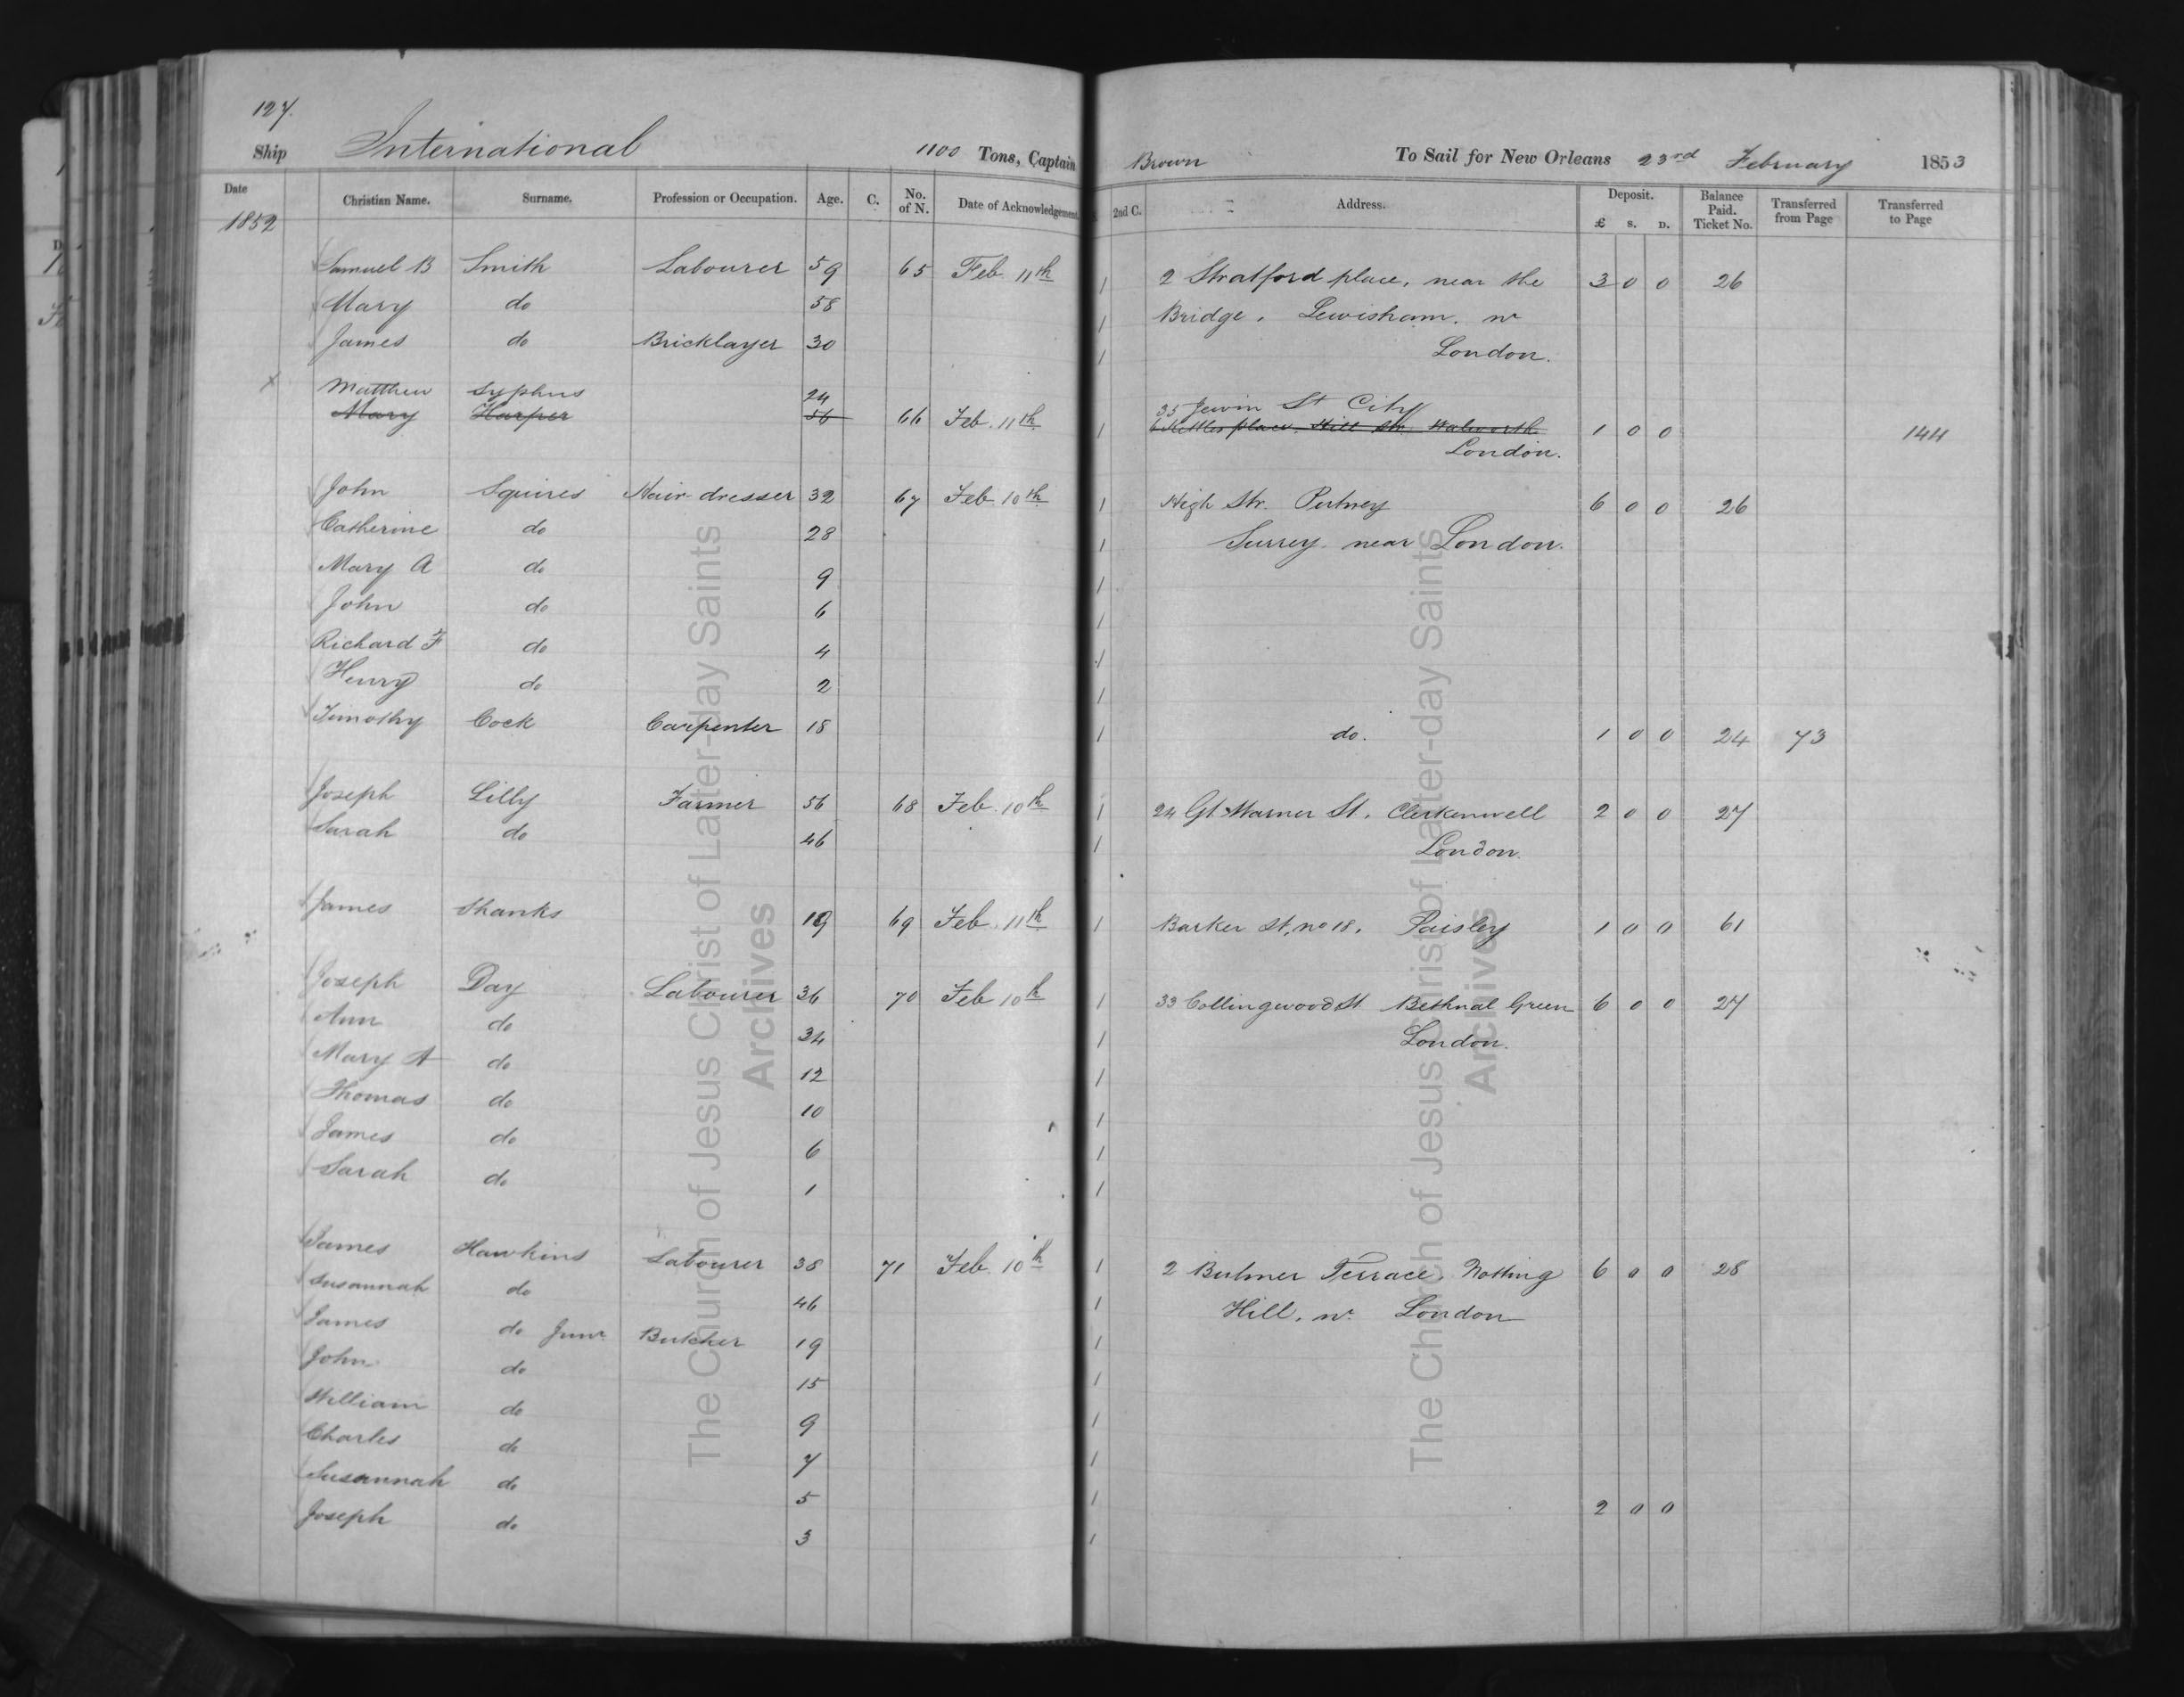 127.
Ship International 1100 Tons, Captain Brown To Sail for New Orleans 23rd February 1853
Date Christian Name. Surname. Profession or Occupation. Age. C. No. of N. Date of Acknowledgement. 2nd C. Address. Deposit. £ s. D. Balance Paid. Ticket No. Transferred from Page Transferred to Page
1852
Samuel B Smith Labourer 59 65 Feb. 11th 1 2 Stratford place, near the 3 0 0 26
Mary do 58 1 Bridge, Lewisham, nr
James do Bricklayer 30 1 London.
Matthew Syphus 24 35 Jewin St City
Mary Harper 56 66 Feb. 11th 1 place, Hill Str. Walworth 1 0 0 144
London.
John Squires Hair-dresser 32 67 Feb 10th 1 High Str. Putney 6 0 0 26
Catherine do 28 1 Surrey near London.
Mary A do 9 1
John do 6 1
Richard F do 4 1
Henry do 2 1
Timothy Cock Carpenter 18 1 do. 1 0 0 24 73
Joseph Lilly Farmer 56 68 Feb. 10th 1 24 Gt Warner St. Clerkenwell 2 0 0 27
Sarah do 46 1 London.
James Shanks 19 69 Feb. 11th 1 Barker St, no 18. Paisley 1 0 0 61
Joseph Day Labourer 36 70 Feb 10th 1 33 Collingwood St Bethnal Green 6 0 0 27
Ann do 34 1 London.
Mary A do 12 1
Thomas do 10 1
James do 6 1
Sarah do 1 1
James Hawkins Labourer 38 71 Feb. 10th 1 2 Bulmer Terrace, Notting 6 0 0 28
Susannah do 46 1 Hill, nr London
James do Junr Butcher 19 1
John do 15 1
William do 9 1
Charles do 7 1
Susannah do 5 1 2 0 0
Joseph do 3 1
The Church of Jesus Christ of Latter-day Saints
Archives
The Church of Jesus Christ of Latter-day Saints
Archives